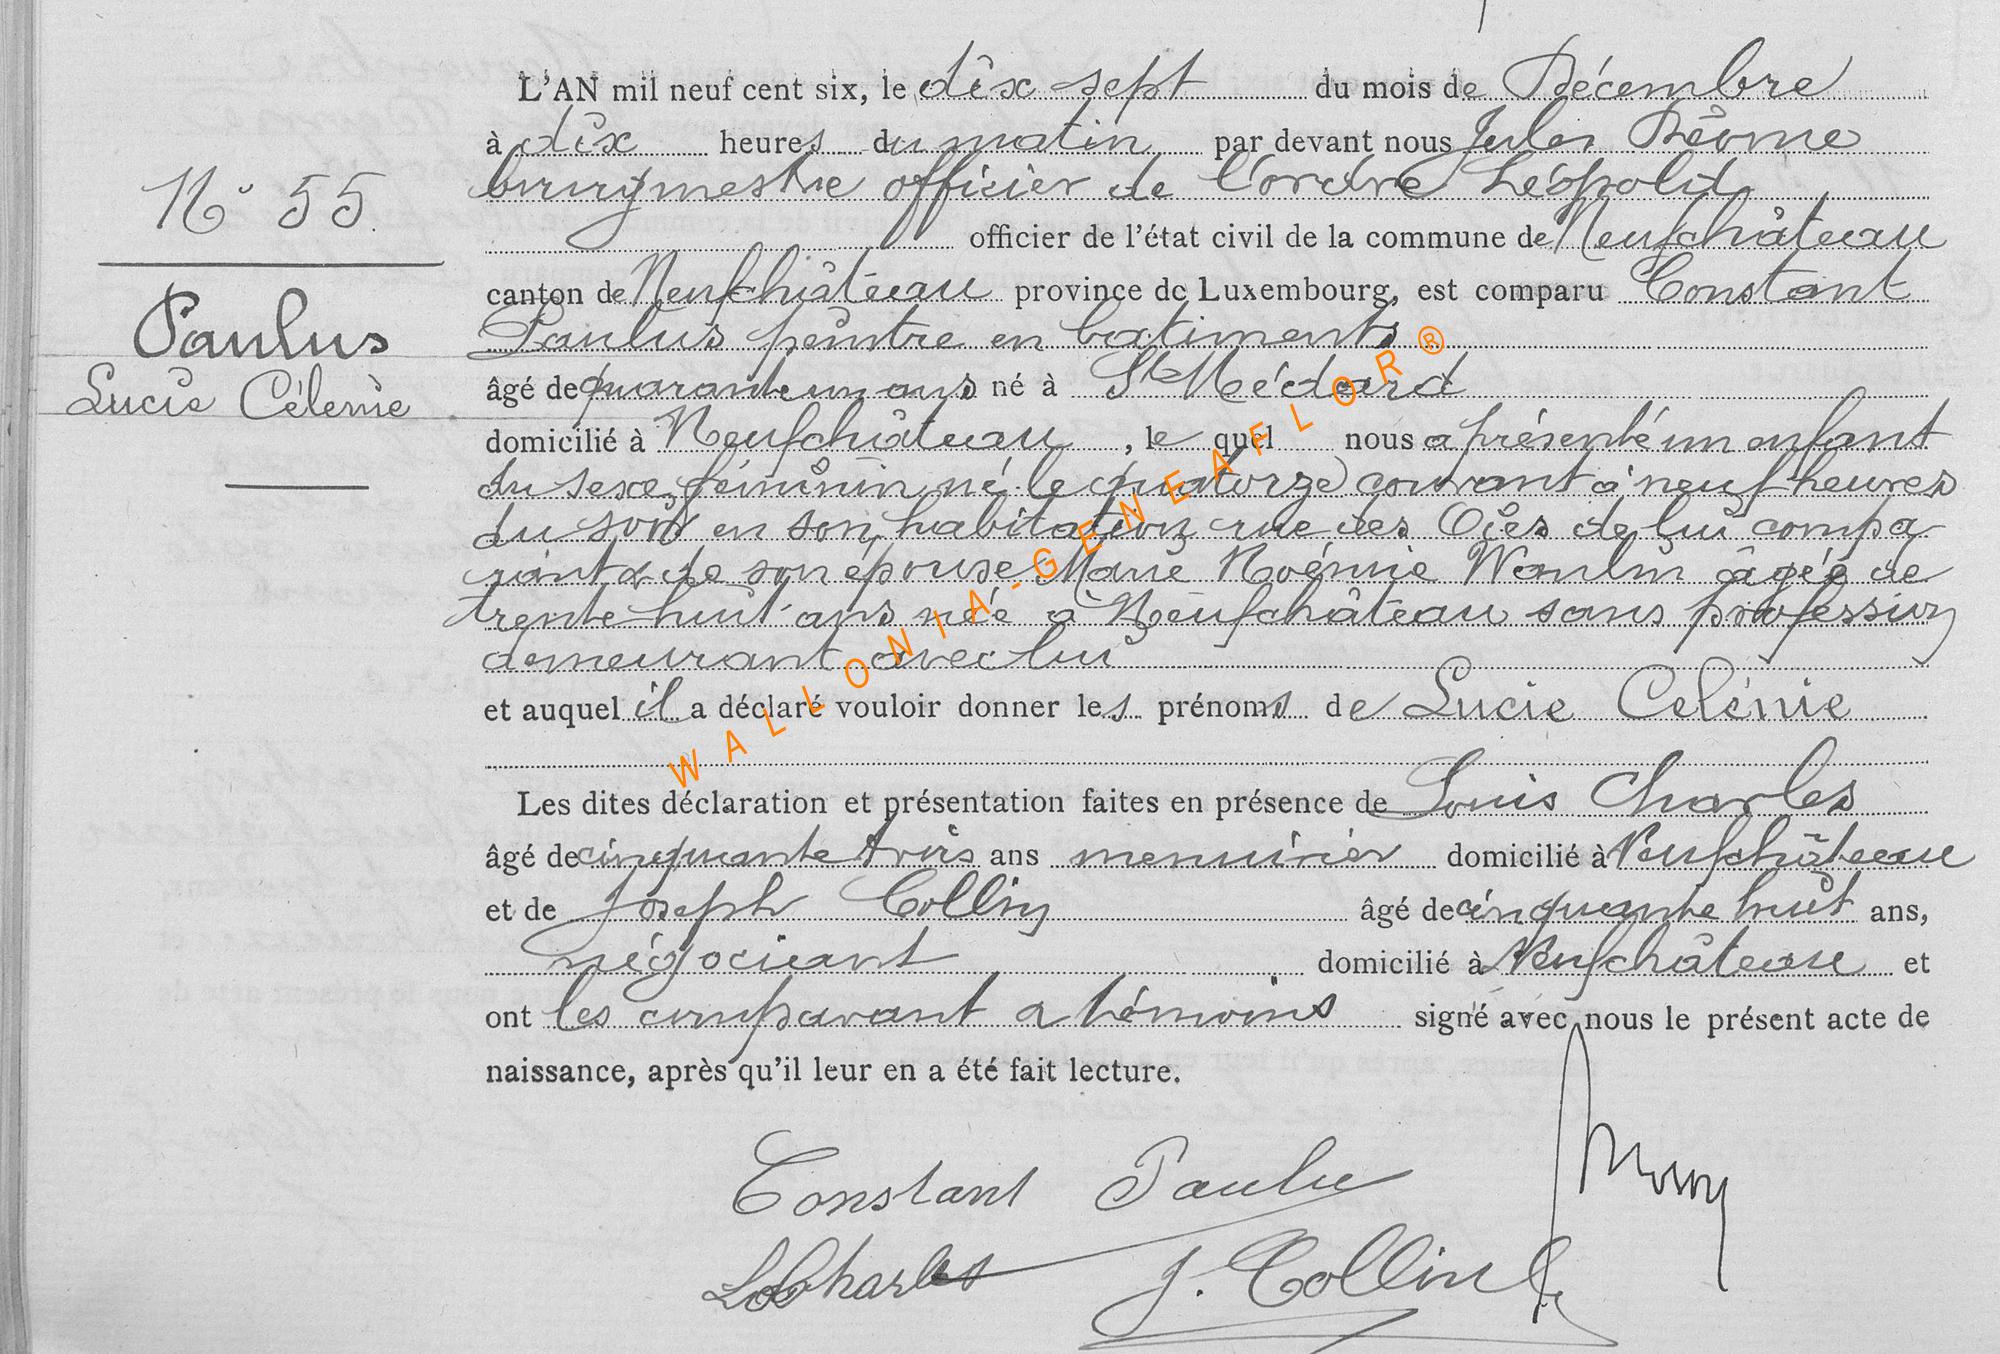 L'AN mil neuf cent six, le dix sept du mois de Décembre
à dix heures du matin par devant nous Jules
burgmestre officier de l'ordre Léopold
officier de l'état civil de la commune de Neufchâteau
canton de Neufchâteau province de Luxembourg, est comparu Constant
Paulus peintre en batiments
âgé de quarante un ans né à St Médard
domicilié à Neufchâteau, le quel nous a présenté un enfant
du sexe féminin né le quatorze courant à neuf heures
du soir en son habitation rue des Oies de lui compa
rant & de son épouse Marie Noémie âgée de
trente huit ans née à Neufchâteau sans profession
demeurant avec lui
et auquel il a déclaré vouloir donner les prénoms de Lucie Celénie
Les dites déclaration et présentation faites en présence de Louis Charles
âgé de cinquante trois ans menuisier domicilié à Neufchâteau
et de Joseph Collin âgé de cinquante huit ans,
négociant domicilié à Neufchâteau et
ont les comparant & témoins signé avec nous le présent acte de
naissance, après qu'il leur en a été fait lecture.
N° 55.
Paulus
Lucie Célenie
Constant Paulus
Charles
J. Collin
WALLONIA-GENEAFLOR®